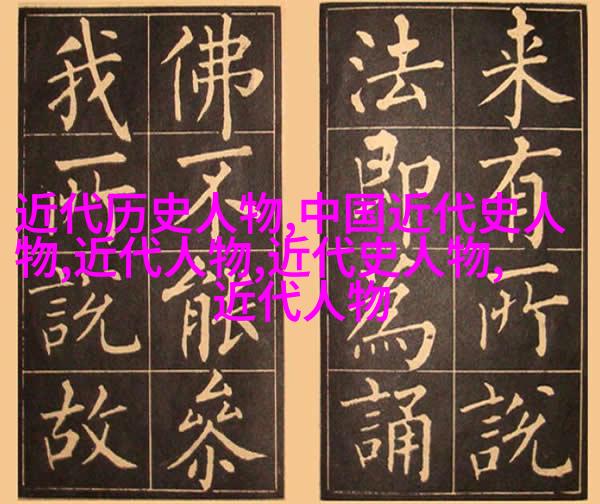 来有所說
法即為誦
佛不能參
我所說故
近代历史人物,中国近代史人
物,近代人物,近代史人物,
近代人物